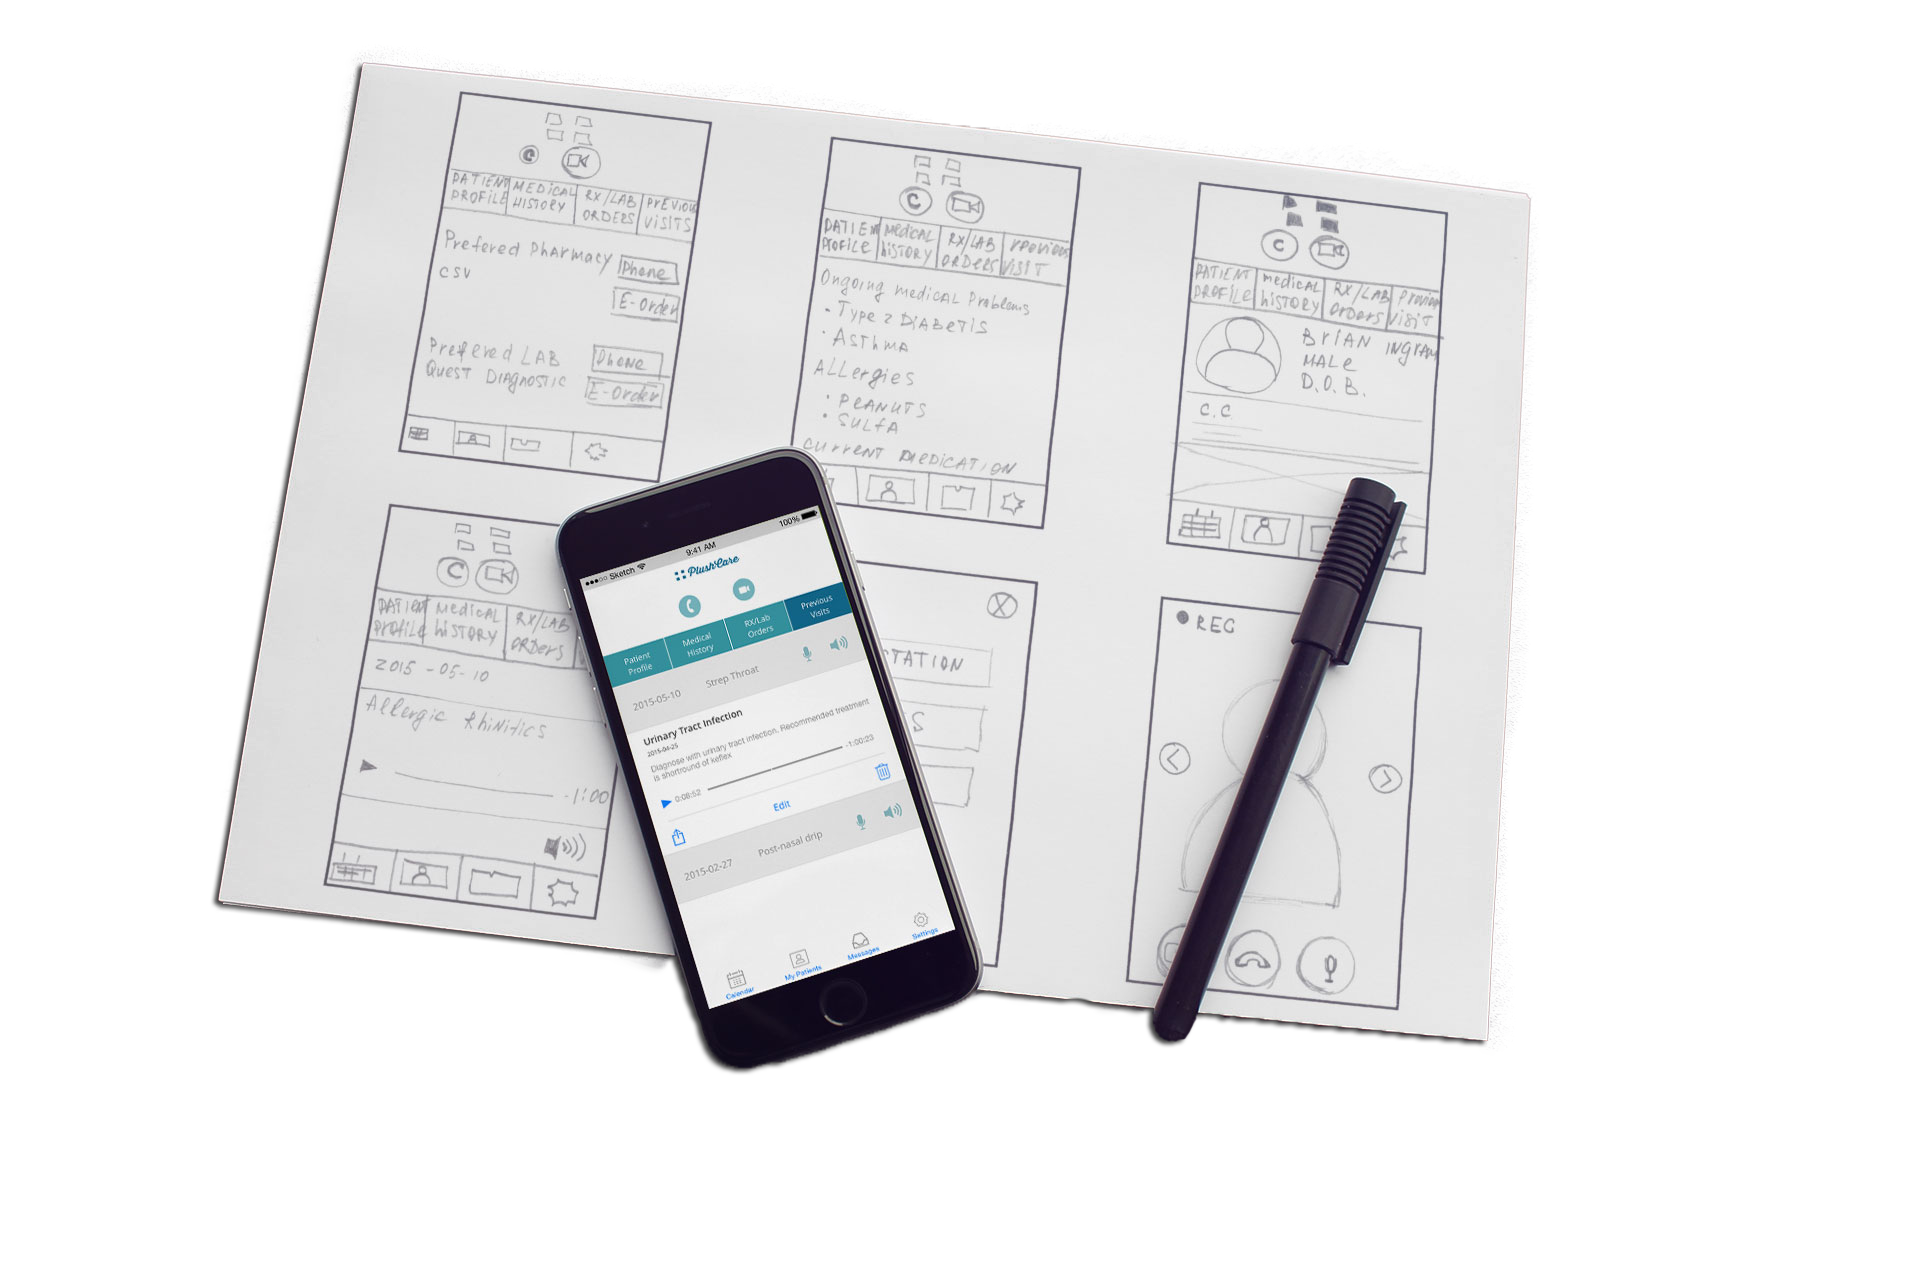 PATIENT PROFILE
MEDICAL HISTORY
RX/LAB ORDERS
PREVIOU VISITS
Prefered Pharmacy
Phone
CSV
E-Order
Prefered LAB
Phone
Quest Diagnostic
E-Order
PATIENT PROFILE
Medical history
RX/LAB ORDERS
Previous VISIT
Ongoing medical Problems
• Type 2 DIABETIS
• ASTHMA
ALLergies
• PEANUTS
• SULFA
CURRENT MEDICATION
PATIENT PROFILE
medical history
RX/LAB orders
Previou VISIT
BRIAN INGRAM
MALE
D.O.B.
C.C.
PATIENT PROFILE
MEDICAL HISTORY
RX/LAB ORDERS
2015-05-10
Allergic RhiNitics
-1:00
Sketch
9:41 AM
100%
PlushCare
Patient Profile
Medical History
RX/Lab Orders
Previous Visits
2015-05-10 Strep Throat
Urinary Tract Infection
2015-04-25
Diagnose with urinary tract infection. Recommended treatment
is shortround of keflex
0:08:52
-1:00:23
Edit
2015-02-27 Post-nasal drip
Calendar
My Patients
Messages
Settings
X
TATION
S
REC